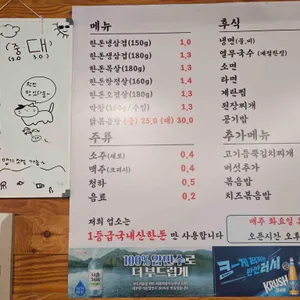 (중 대)
메뉴
한돈냉삼겹(150g) 1,0
한돈생삼겹(180g) 1,3
한돈목살(180g) 1,3
한돈항정살(160g) 1,4
한돈오겹살(180g) 1,3
막창(160g/수입) 1,3
닭볶음탕 (중) 25,0 (대) 30,0
주류
소주 0,4
맥주 0,4
청하 0,5
음료 0,2
저희 업소는
1등급국내산한돈 만 사용합니다
후식
냉면(물,비)
열무국수
소면
라면
계란찜
된장찌개
공기밥
추가메뉴
고기듬뿍김치찌개
버섯추가
볶음밥
치즈볶음밥
매주 화요일
오픈시간 오후
100% 암반수로
더 부드럽게
크~게 터지는
탄산러시
KRUSH